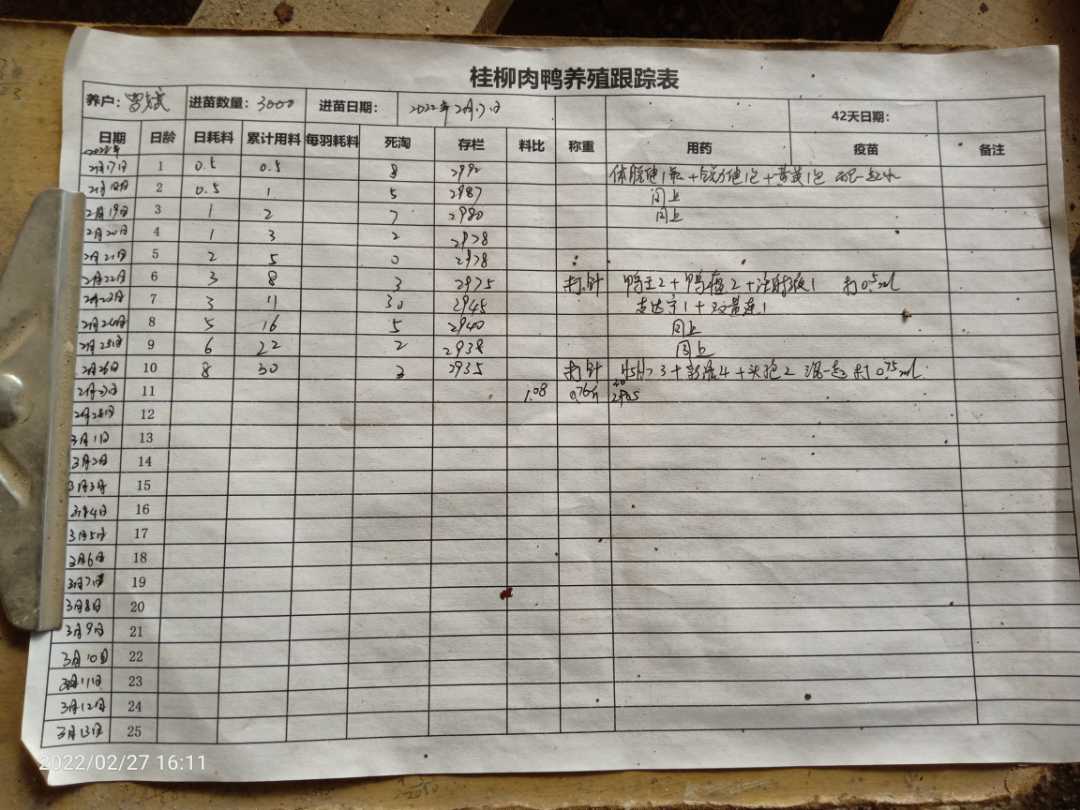 桂柳肉鸭养殖跟踪表
养户: 进苗数量: 3000 进苗日期: 2022年2月17日 42天日期:
日期 日龄 日耗料 累计用料 每羽耗料 死淘 存栏 料比 称重 用药 疫苗 备注
2022年
2月17日 1 0.5 0.5 8 2992
2月18日 2 0.5 1 5 2987 同上
2月19日 3 1 2 7 2980 同上
2月20日 4 1 3 2 2978
2月21日 5 2 5 0 2978
2月22日 6 3 8 3 2975 打针 鸭主2+鸭瘟2+注射液1 打0.5ml
2月23日 7 3 11 30 2945
2月24日 8 5 16 5 2940 同上
2月25日 9 6 22 2 2938 同上
2月26日 10 8 30 3 2935 打针 3+ 4+头孢2 混一起打0.75ml
2月27日 11 1.08
2月28日 12
3月1日 13
3月2日 14
3月3日 15
3月4日 16
3月5日 17
3月6日 18
3月7日 19
3月8日 20
3月9日 21
3月10日 22
3月11日 23
3月12日 24
3月13日 25
2022/02/27 16:11